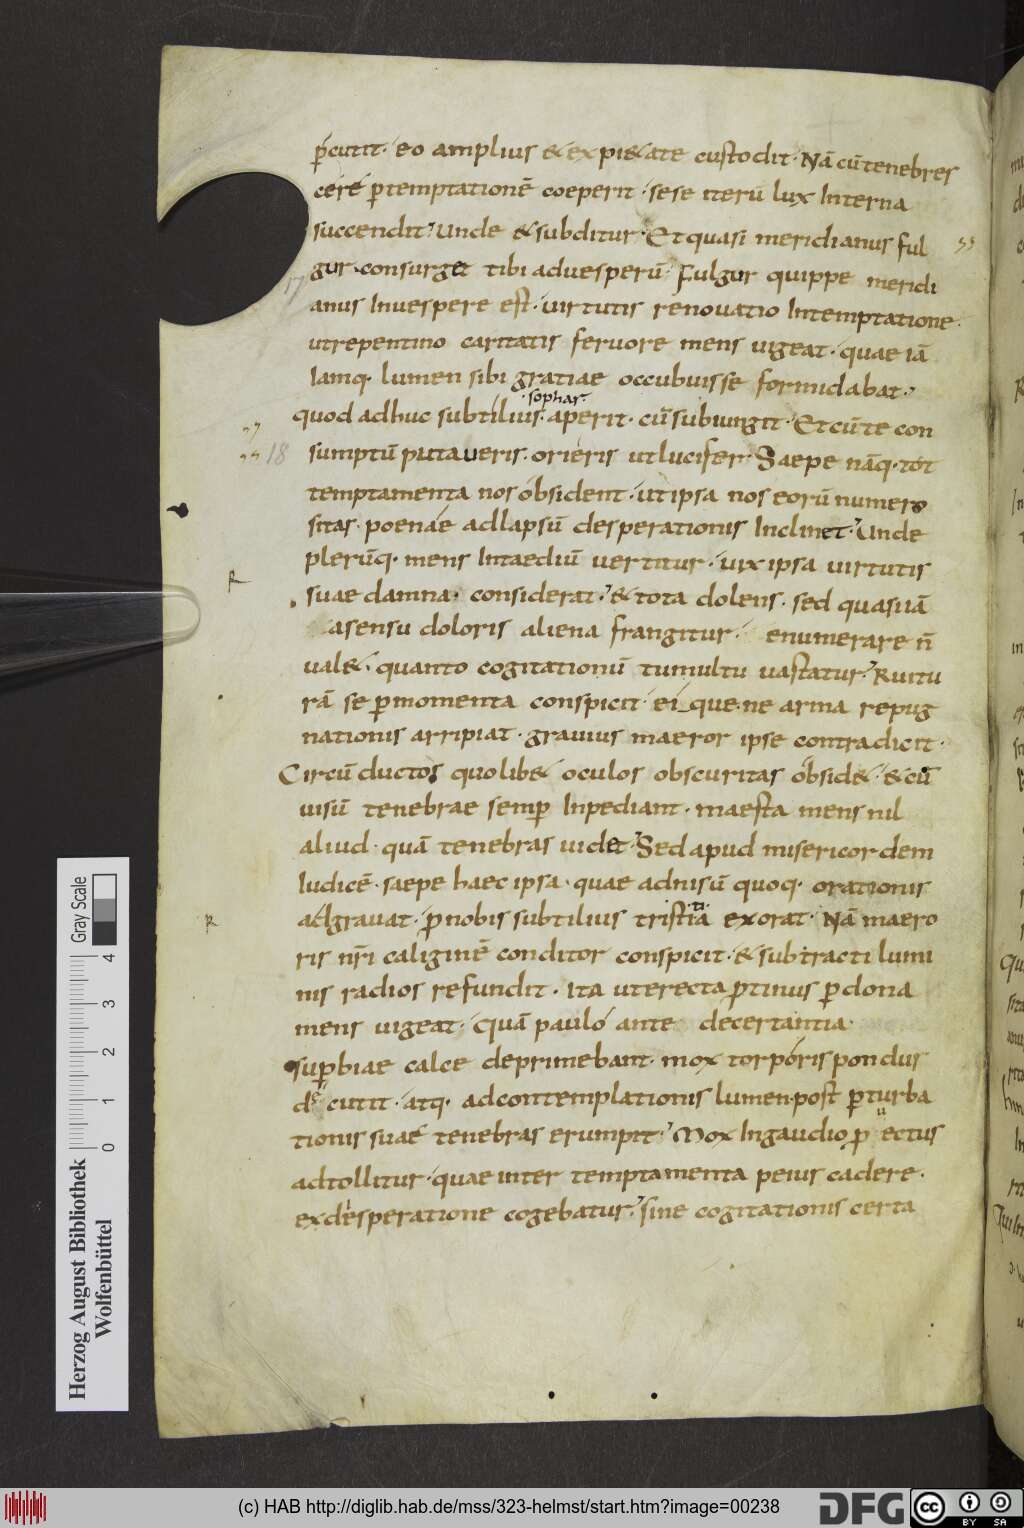 p̄cutit· eo amplius & ex pi&ate custodit· Nā cū tenebres
cere p̄ temptationē coeperit· sese iterū lux Interna
succendit· Unde & subditur· Et quasi meridianus ful
gur· consurget tibi ad uesperū· Fulgur quippe meridi
17
anus In uespere est· uirtutis renouatio In temptatione·
ut repentino caritatis feruore mens uigeat· quae iā
Iamq· lumen sibi gratiae occubuisse formidabat·
·sophar·
quod adhuc subtilius· aperit· cū subiungit· Et cū te con
18 sumptū putaueris· orieris ut lucifer· Saepe nāq· tot
temptamenta nos obsident· ut ipsa nos eorū numero
sitas· poenae ad lapsū desperationis Inclinet· Unde
plerūq· mens In taediū uertitur· uix ipsa uirtutis
R
suae damna· considerat· & tota dolens· sed quasi iā
a sensu doloris aliena frangitur· enumerare n̄
ual&· quanto cogitationū tumultu uastatur· Ruitu
rā se p̄ momenta conspicit· ei que· ne arma repug
nationis arripiat· grauius maeror ipse contradicit·
Circū ductos quolib& oculos obscuritas obsid&· & cū
uisū tenebrae semp̄ Inpediant· maesta mens nil
aliud· quā tenebras uidet· Sed apud misericordem
Iudicē· saepe haec ipsa· quae ad nisū quoq· orationis
R
adgrauat· p̄ nobis subtilius tristia exorat· Nā maero
ris nr̄i caliginē conditor conspicit· & subtracti lumi
nis radios refundit· Ita ut erecta p̄tinus p̄ dona
mens uigeat· quā paulo ante decertantia·
sup̄biae calce deprimebant· mox torporis pondus
discutit· atq· ad contemplationis lumen· post p̄turba
tionis suae tenebras erumpit· Mox In gaudio p̄uectus
adtollitur· quae inter temptamenta peius cadere·
ex desperatione cogebatur· sine cogitationis certa
Herzog August Bibliothek
Wolfenbüttel
0 1 2 3 4
Gray Scale
(c) HAB http://diglib.hab.de/mss/323-helmst/start.htm?image=00238
DFG
cc BY SA